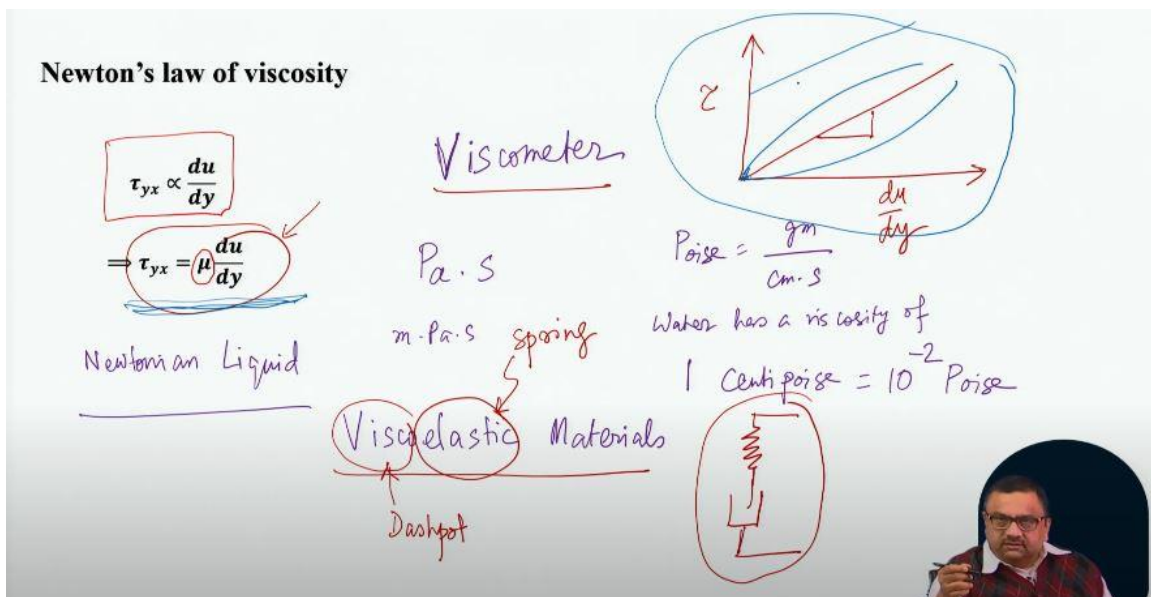 Newton's law of viscosity
τyx ∝ du/dy
⟹ τyx = μ du/dy
Newtonian Liquid
Viscometer
Pa . s
m.Pa.s
spring
Viscoelastic Materials
Dashpot
τ
du/dy
Poise = gm/cm.s
Water has a viscosity of
1 Centipoise = 10⁻² Poise